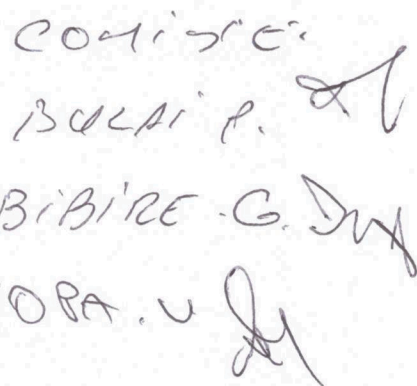 COMISIE:
BULAI P.
BIBIRE.G.
OPA.V